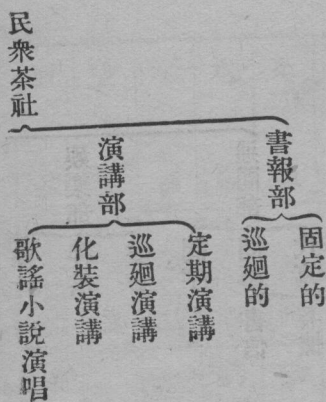 民衆茶社
書報部
固定的
巡廻的
演講部
定期演講
巡廻演講
化裝演講
歌謠小說演唱